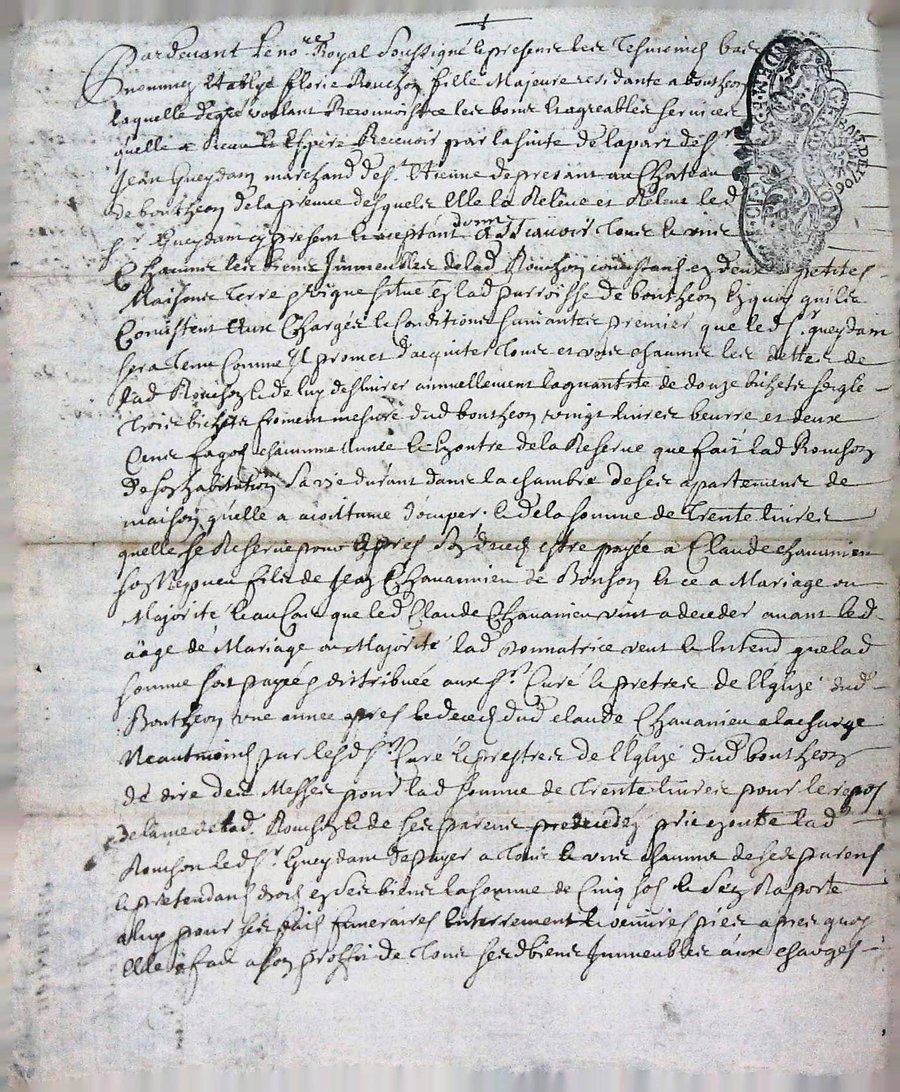 Pardevant Le no.re Royal Soussigné & presens les Tesmoings bas
nommez establye Florie Rouchon fille Majeure residante a bontheon
Laquelle de gré voulant Reconnoistre les bons & agreables services
quelle a Receu & Espere Recevoir par la suitte de la part de s.r
Jean Gueydam marchand de s.t Etienne de present au Chateau
de bontheon de la preuve desquels Elle la Releve et Releve led
s.r Gueydam cy present & acceptant donne a Tous & uns
Chacuns les biens Immeubles de lad Rouchon consistans en deux petites
Maisons Terre vigne situe en lad parroisse de bontheon En quoy quils
Consistent Aux Charges & Conditions suivantes premier que led s.r gueydam
sera Tenu Comme Il promet dacquiter Tous et uns chacuns les dettes de
lad Rouchon & de luy deslivrer annuellement la quantite de douze bichets seigle
Trois bichets froment mesure dud bontheon vingt livres beurre et deux
Cens fagots chacune année & Outre de la Reserve que fait lad Rouchon
de son habitation Sa vie durant dans la chambre de ses apartemens de
maison quelle a acoittume docuper & de la somme de Trente livres
quelle se Reserve pour apres son deces estre payée a Claude chavanieu
son Nepveu fils de Jean Chavannieu de Bonson Et ce a Mariage ou
Majorité & au Cas que led Claude Chavanieu vint a deceder avant led
aage de Mariage ou Majorité lad donnatrice veut & Entend que lad
somme soit payée & distribuée aux s.rs Curé & pretres de l'Eglize dud
Bontheon une année apres le deces dud claude Chavanieu a la charge
Neantmoins par lesd s.rs Curé & prestres de l'Eglize dud bontheon
de dire des Messes pour lad somme de Trente livres pour le repos
de lame de lad. Rouchon & de ses parens predecedez prie & outre lad
Rouchon led s.r Gueydam de payer a Tous & uns chacuns de ses parens
& pretendans droit en ses biens la somme de Cinq sols & sen Raporte
a luy pour ses frais funeraires Enterrement & oeuvres pies apres quoy
Elle a fait a son proffit de Tous sesd biens Immeubles aux charges